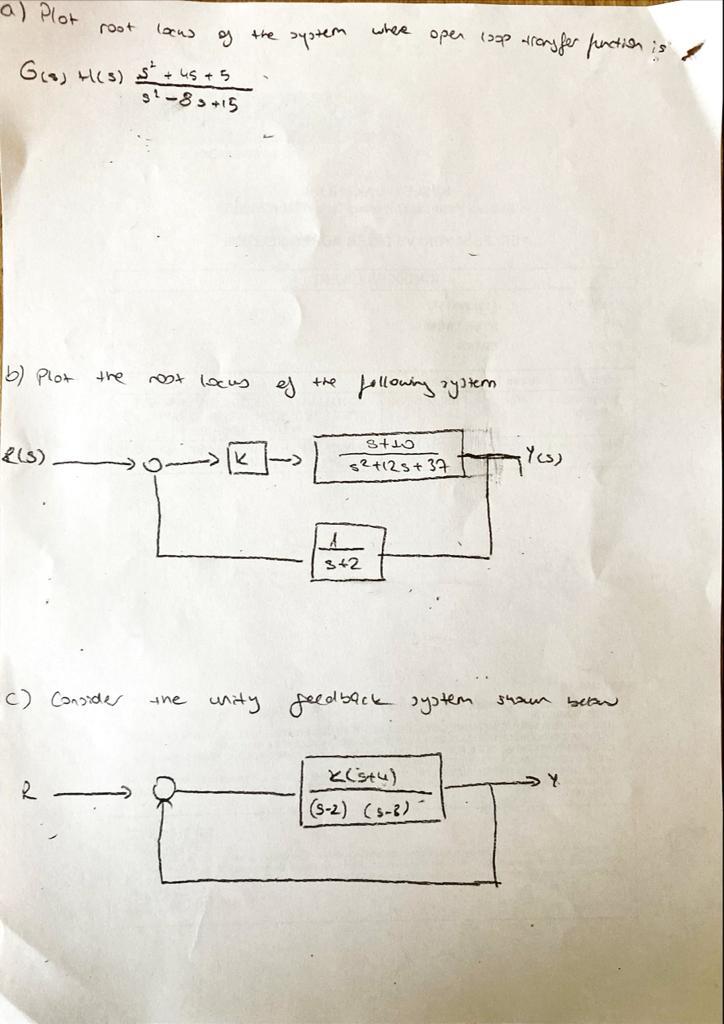 a) Plot root locus of the system whee open loop transfer function is
G(s) H(s) s² + 4s + 5
s² - 8s + 15
b) Plot the root locus of the following system
R(s)
K
s+10
s²+12s+37
Y(s)
1
s+2
c) Consider the unity feedback system shown below
R
K(s+4)
(s-2) (s-8)
Y